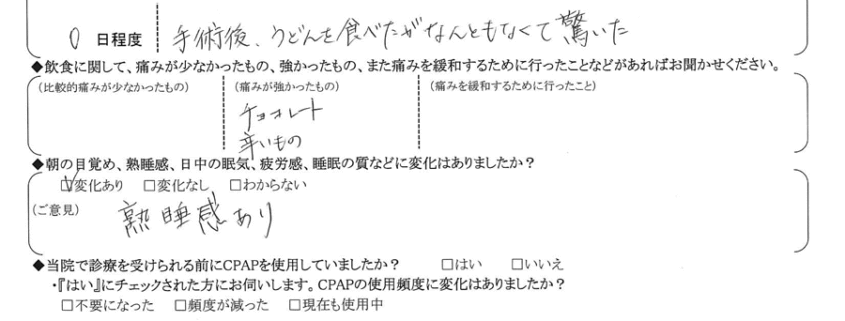 0 日程度 手術後、うどんを食べたがなんともなくて驚いた
◆飲食に関して、痛みが少なかったもの、強かったもの、また痛みを緩和するために行ったことなどがあればお聞かせください。
(比較的痛みが少なかったもの) (痛みが強かったもの) (痛みを緩和するために行ったこと)
チョコレート
辛いもの
◆朝の目覚め、熟睡感、日中の眠気、疲労感、睡眠の質などに変化はありましたか?
☑変化あり □変化なし □わからない
(ご意見) 熟睡感あり
◆当院で診療を受けられる前にCPAPを使用していましたか? □はい □いいえ
・『はい』にチェックされた方にお伺いします。CPAPの使用頻度に変化はありましたか?
□不要になった □頻度が減った □現在も使用中